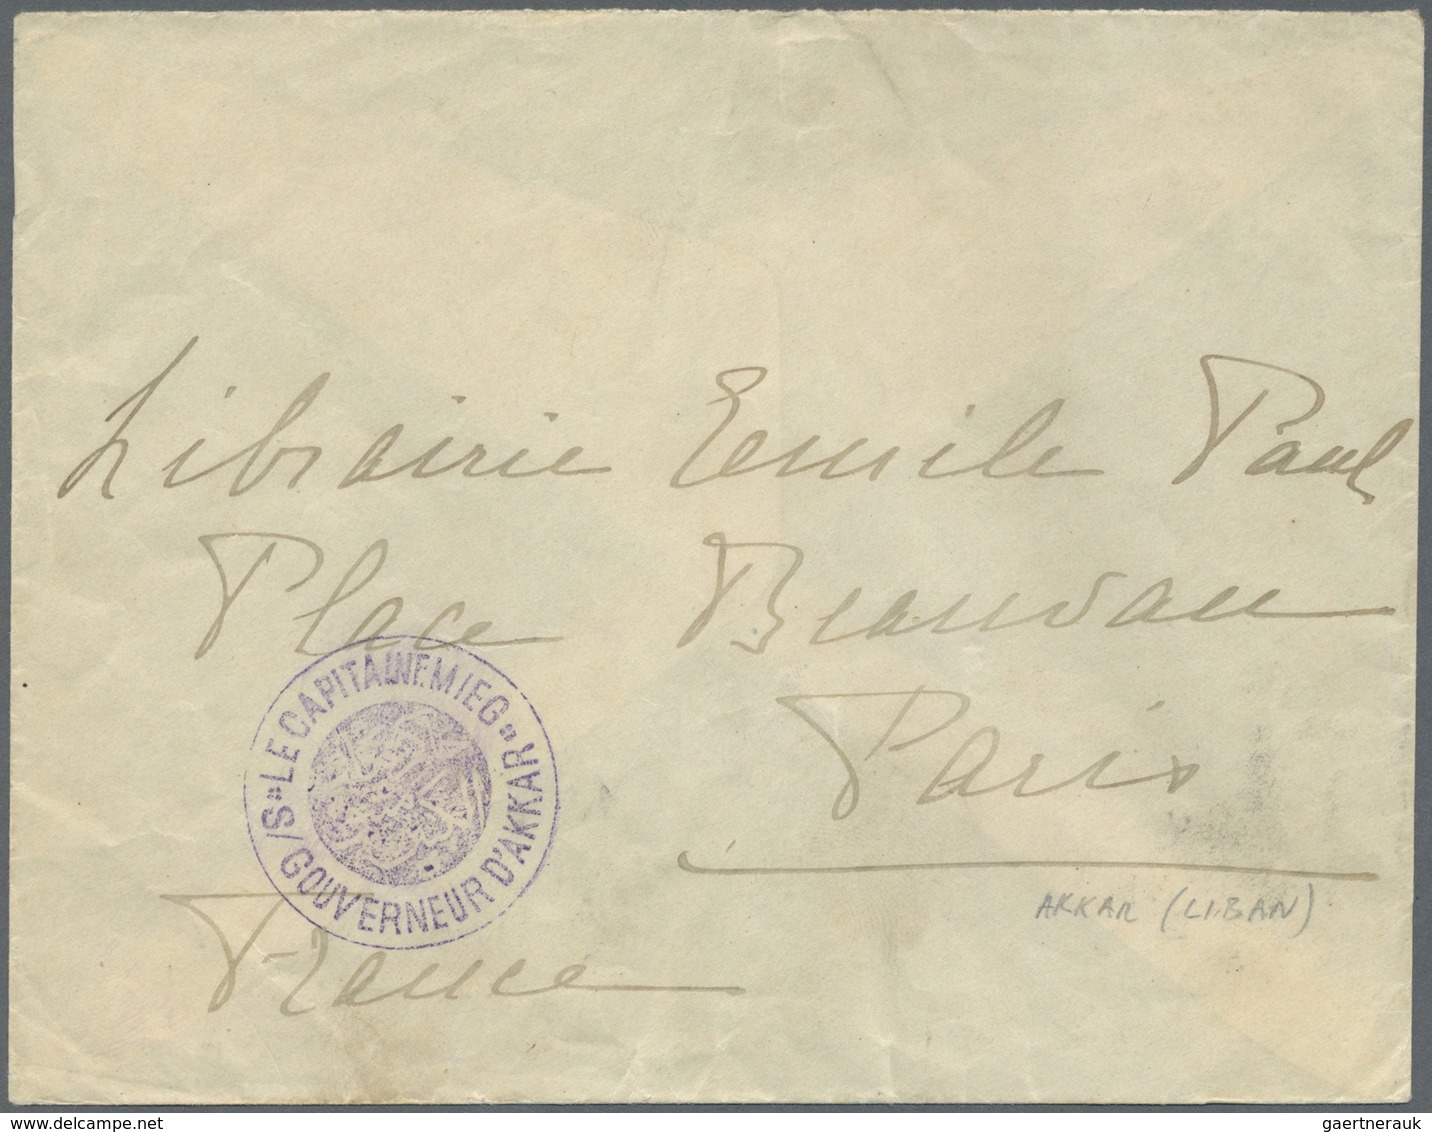 Librairie Emile Paul
Place Beauvau
Paris
"LE CAPITAINE MIEG"
S/GOUVERNEUR D'AKKAR
France
AKKAR (LIBAN)
www.delcampe.net
gaertnerauk